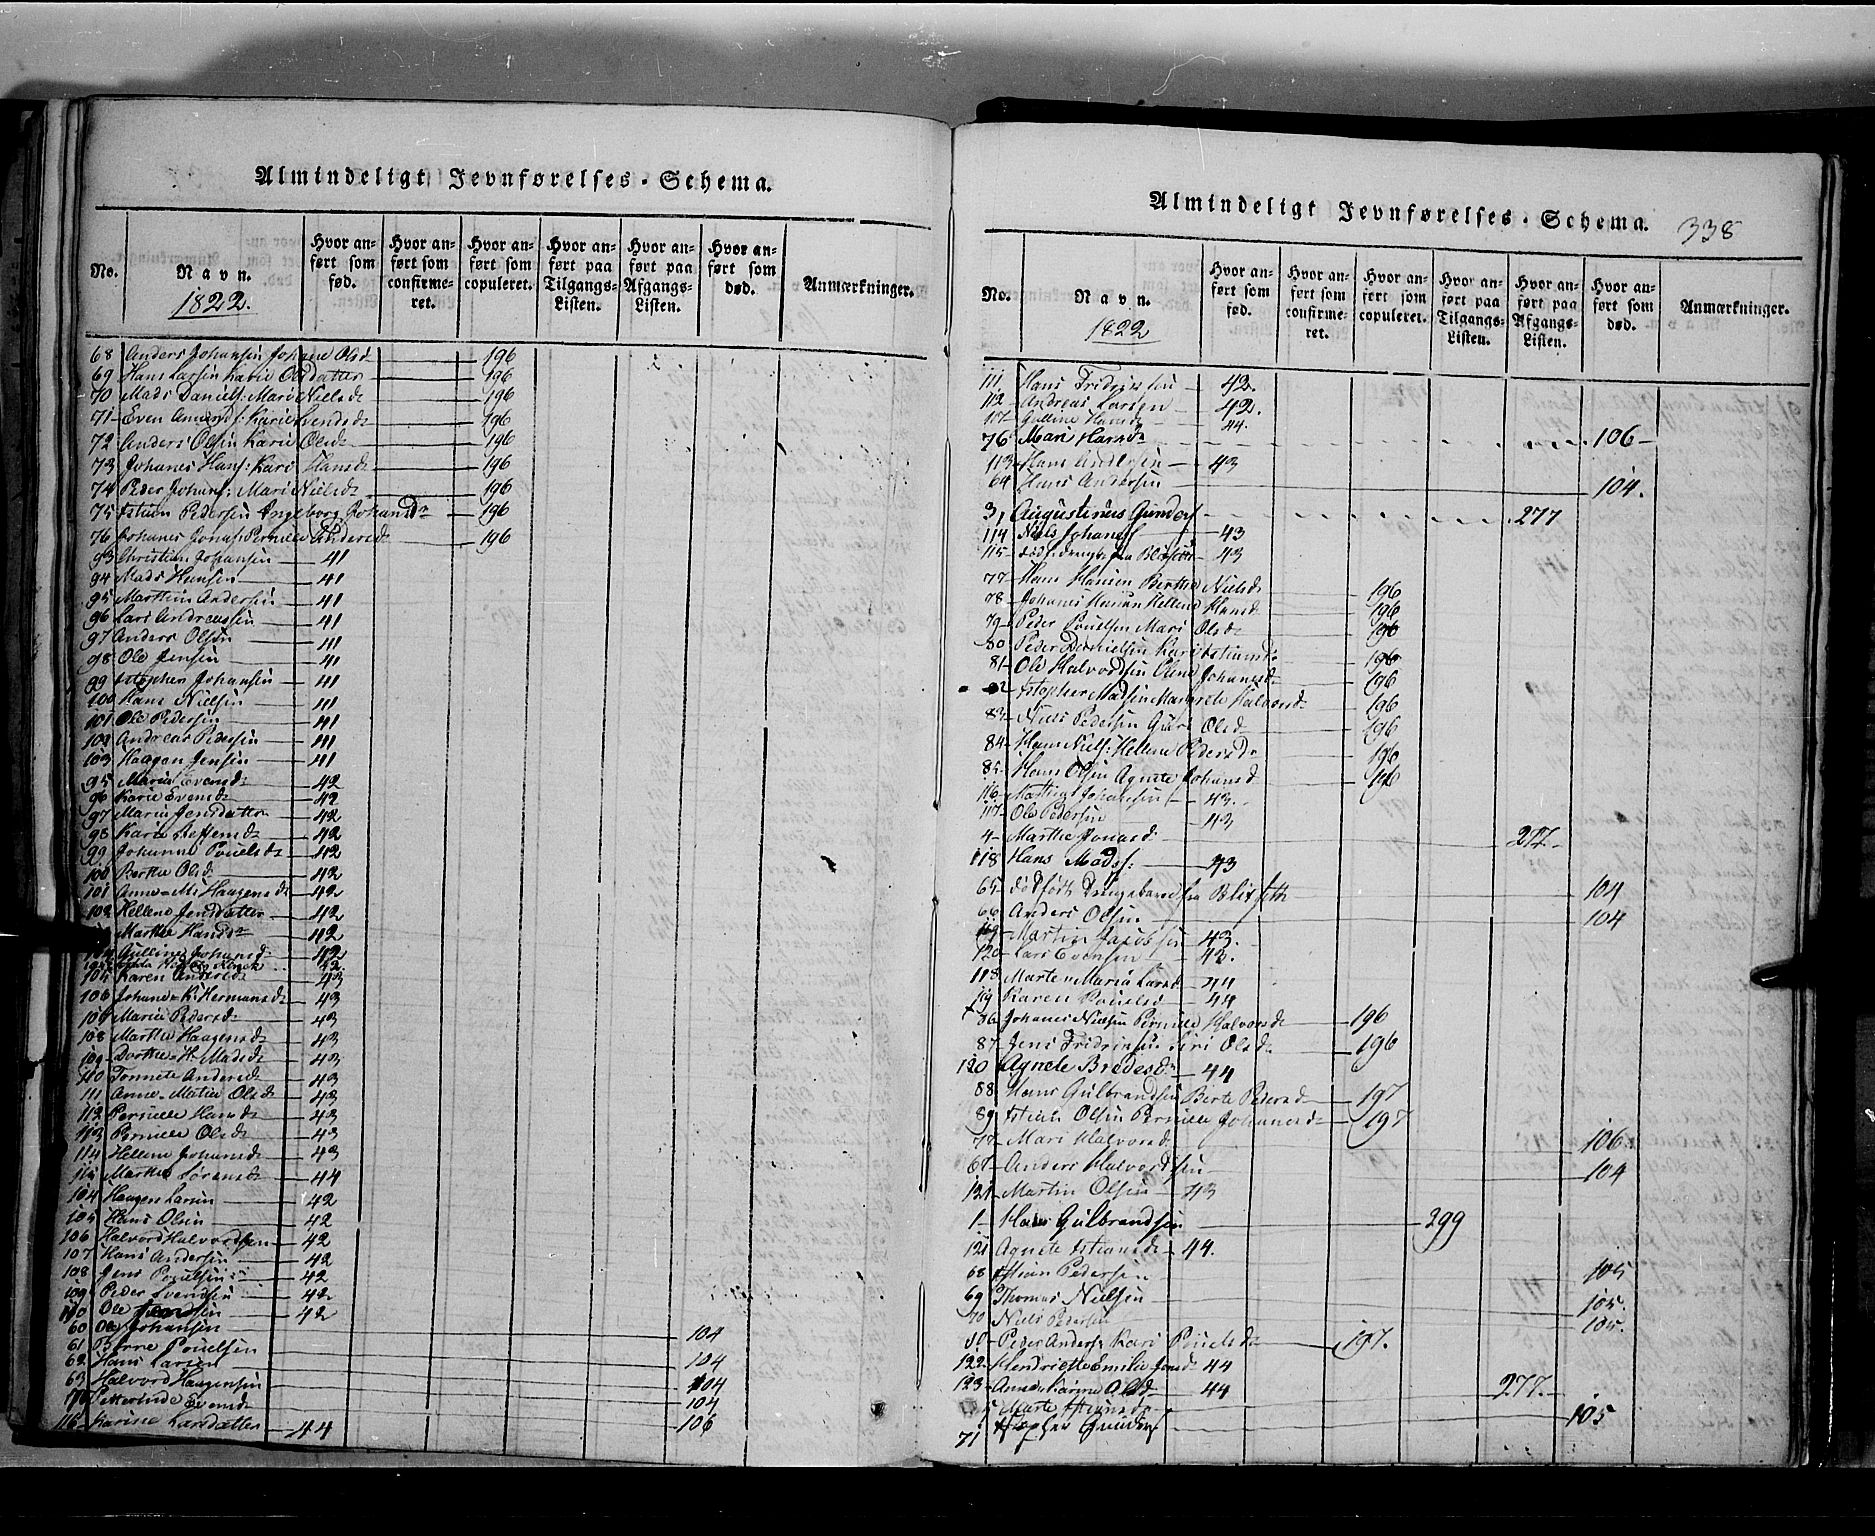 Almindeligt Jevnførelses-Schema.
No. Navn. 1822. Hvor anført som fød. Hvor anført som confirmeret. Hvor anført som copuleret. Hvor anført paa Tilgangs-Listen. Hvor anført paa Afgangs-Listen. Hvor anført som død. Anmærkninger.
68 Anders Johansen Johane Olsd 196
69 Hans Larsen Karie Olsdatter 196
70 Mads Daniels: Mari Nielsd 196
71 Even Amunds: Karie Svendsd 196
72 Anders Olsen Karie Olsd 196
73 Johanes Hans: Kari Hansd 196
74 Peder Johans: Mari Nielsd 196
75 Pedersen Ingeborg Johansdr 196
76 Johanes Jonas: Pernille Andersd 196
93 Christian Johansen 41
94 Mads Hansen 41
95 Marthin Andersen 41
96 Lars Andreassen 41
97 Anders Olsen 41
98 Ole Jensen 41
99 Johansen 41
100 Hans Nielsen 41
101 Ole Pedersen 41
102 Andreas Pedersen 41
103 Haagen Jensen 41
95 Maria Evensd 42
96 Karie Evensd 42
97 Maria Jensdatter 42
98 Karie Steffensd 42
99 Johanne Pouelsd 42
100 Berthe Olsd 42
101 Anne-M: Haagensd 42
102 Hellene Jensdatter 42
Marthe Hansdr 42
104 Gulline Johansd 42
42
105 Karen Andersd 43
106 Johane K: Hermansd 43
107 Maria Pedersd 43
108 Marthe Haagensd 43
109 Dorthe H: Madsd 43
110 Tonnete Andersd 43
111 Anne-Matia Olsd 43
112 Pernille Hansd 43
113 Pernille Olsd 43
114 Hellene Johansd 43
115 Marthe Sørensd 44
104 Haagen Larsen 42
105 Hans Olsen 42
106 Halvord Halvordsen 42
107 Hans Andersen 42
108 Jens Pouelsen 42
109 Peder Svendsen 42
110 Ole Svendsen 42
60 Ole Johansen 104
61 Børre Pouelsen 104
62 Hans Larsen 104
63 Halvord Haagensen 104
Petterinde Evensd 106
116 Karine Larsdatter 44
Almindeligt Jevnførelses-Schema. 338
No. Navn. 1822 Hvor anført som fød. Hvor anført som confirmeret. Hvor anført som copuleret. Hvor anført paa Tilgangs-Listen. Hvor anført paa Afgangs-Listen. Hvor anført som død. Anmærkninger.
111 Hans Fridrichsen 42.
112 Andreas Larsen 42.
117 Gulline Hansd 44.
76 Mari Hansdr 106
113 Hans Andersen 43
64 Hans Andersen 104.
3 Augustinus Gunders 277
114 Niels Johans 43
115 43
77 Hans Hansen Berthe Nielsd 196
78 Johanes Hansen Hellene Hansd 196
79 Peder Pouelsen Mari Olsd 196
80 Peder Danielsen Kari 196
81 Ole Halvordsen Olene Johansd 196
82 Madsen Margrete Halvorsd 196
83 Niels Pedersen Guro Olsd 196
84 Hans Niels: Hellene Pedersd 196
85 Hans Olsen Agnete Johansd 196
116 Mathias Johansen 43.
117 Ole Pedersen 43
4 Marthe Jonasd 277.
118 Hans Mads: 43
65 dødfødt Drengebarn fra 104
66 Anders Olsen 104
119 Martin Jacobsen 43.
120 Lars Evensen 43.
118 Marte Maria Larsd 44
119 Karen Pouelsd 44
86 Johanes Nielsen Pernille Halvorsd 196
87 Jens Fridrichs. Siri Olsd 196
120 Agnete Bredesdr 44
88 Hans Gulbrandsen Berte Pedersd 197
89 Olsen Pernille Johansd 197
77 Mari Halvorsd 106
67 Anders Halvordsen 104
121 Martin Olsen 43
1 Hans Gulbrandsen 299
121 Agnete 44.
68 Pedersen 105
69 Thomas Nielsen 105.
70 Niels Pedersen 105.
Peder Anders: Kari Pouelsd 197.
122 Henriette Emilie Jensd 44
123 Anne Karine Olsd 44
5 Marte 277.
71 Gunders 105